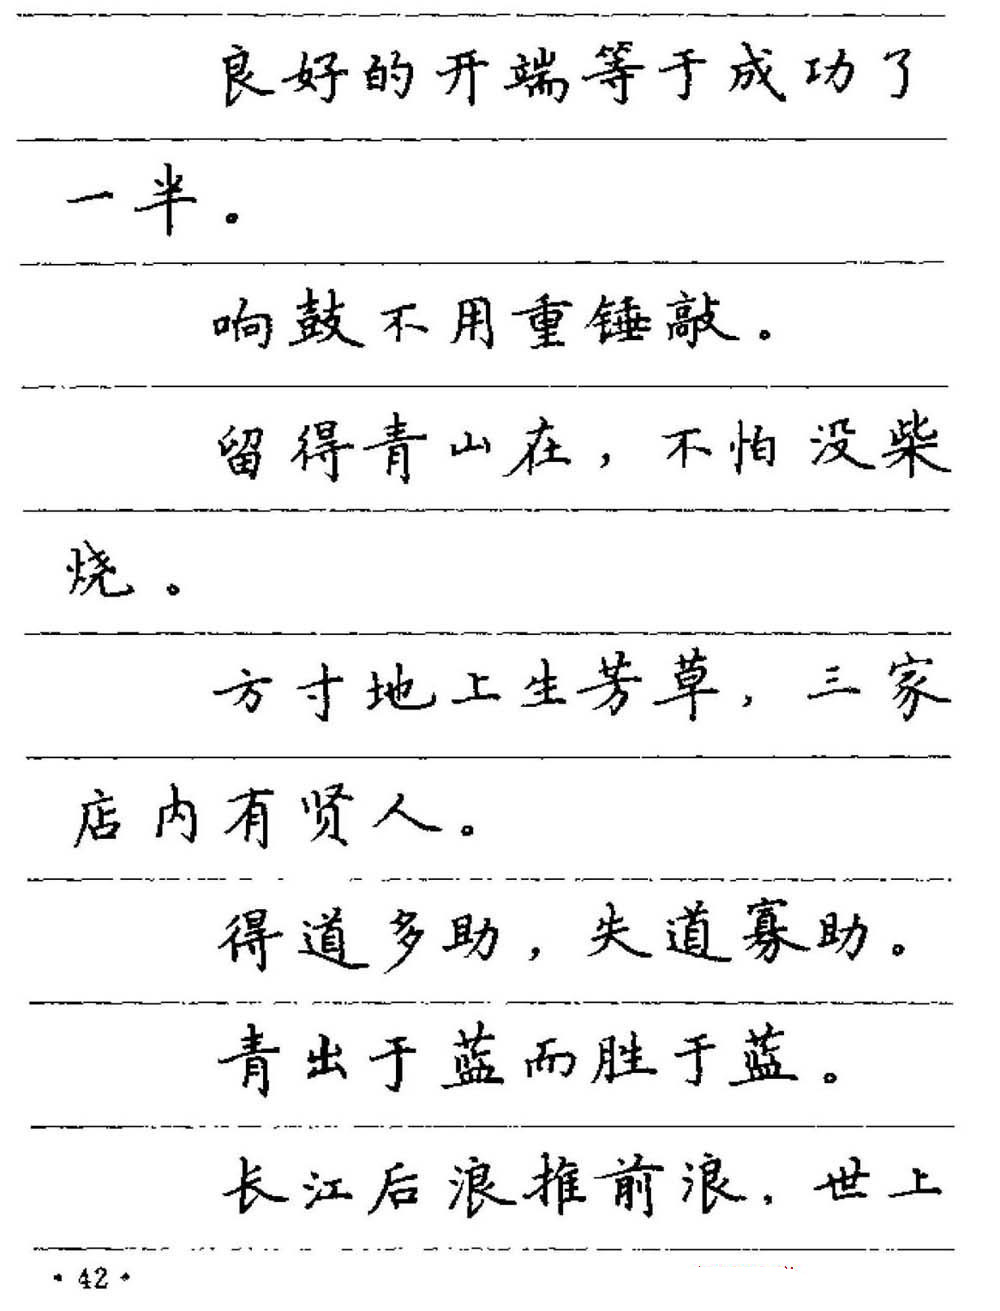 良好的开端等于成功了
一半。
响鼓不用重锤敲。
留得青山在，不怕没柴
烧。
方寸地上生芳草，三家
店内有贤人。
得道多助，失道寡助。
青出于蓝而胜于蓝。
长江后浪推前浪，世上
·42·